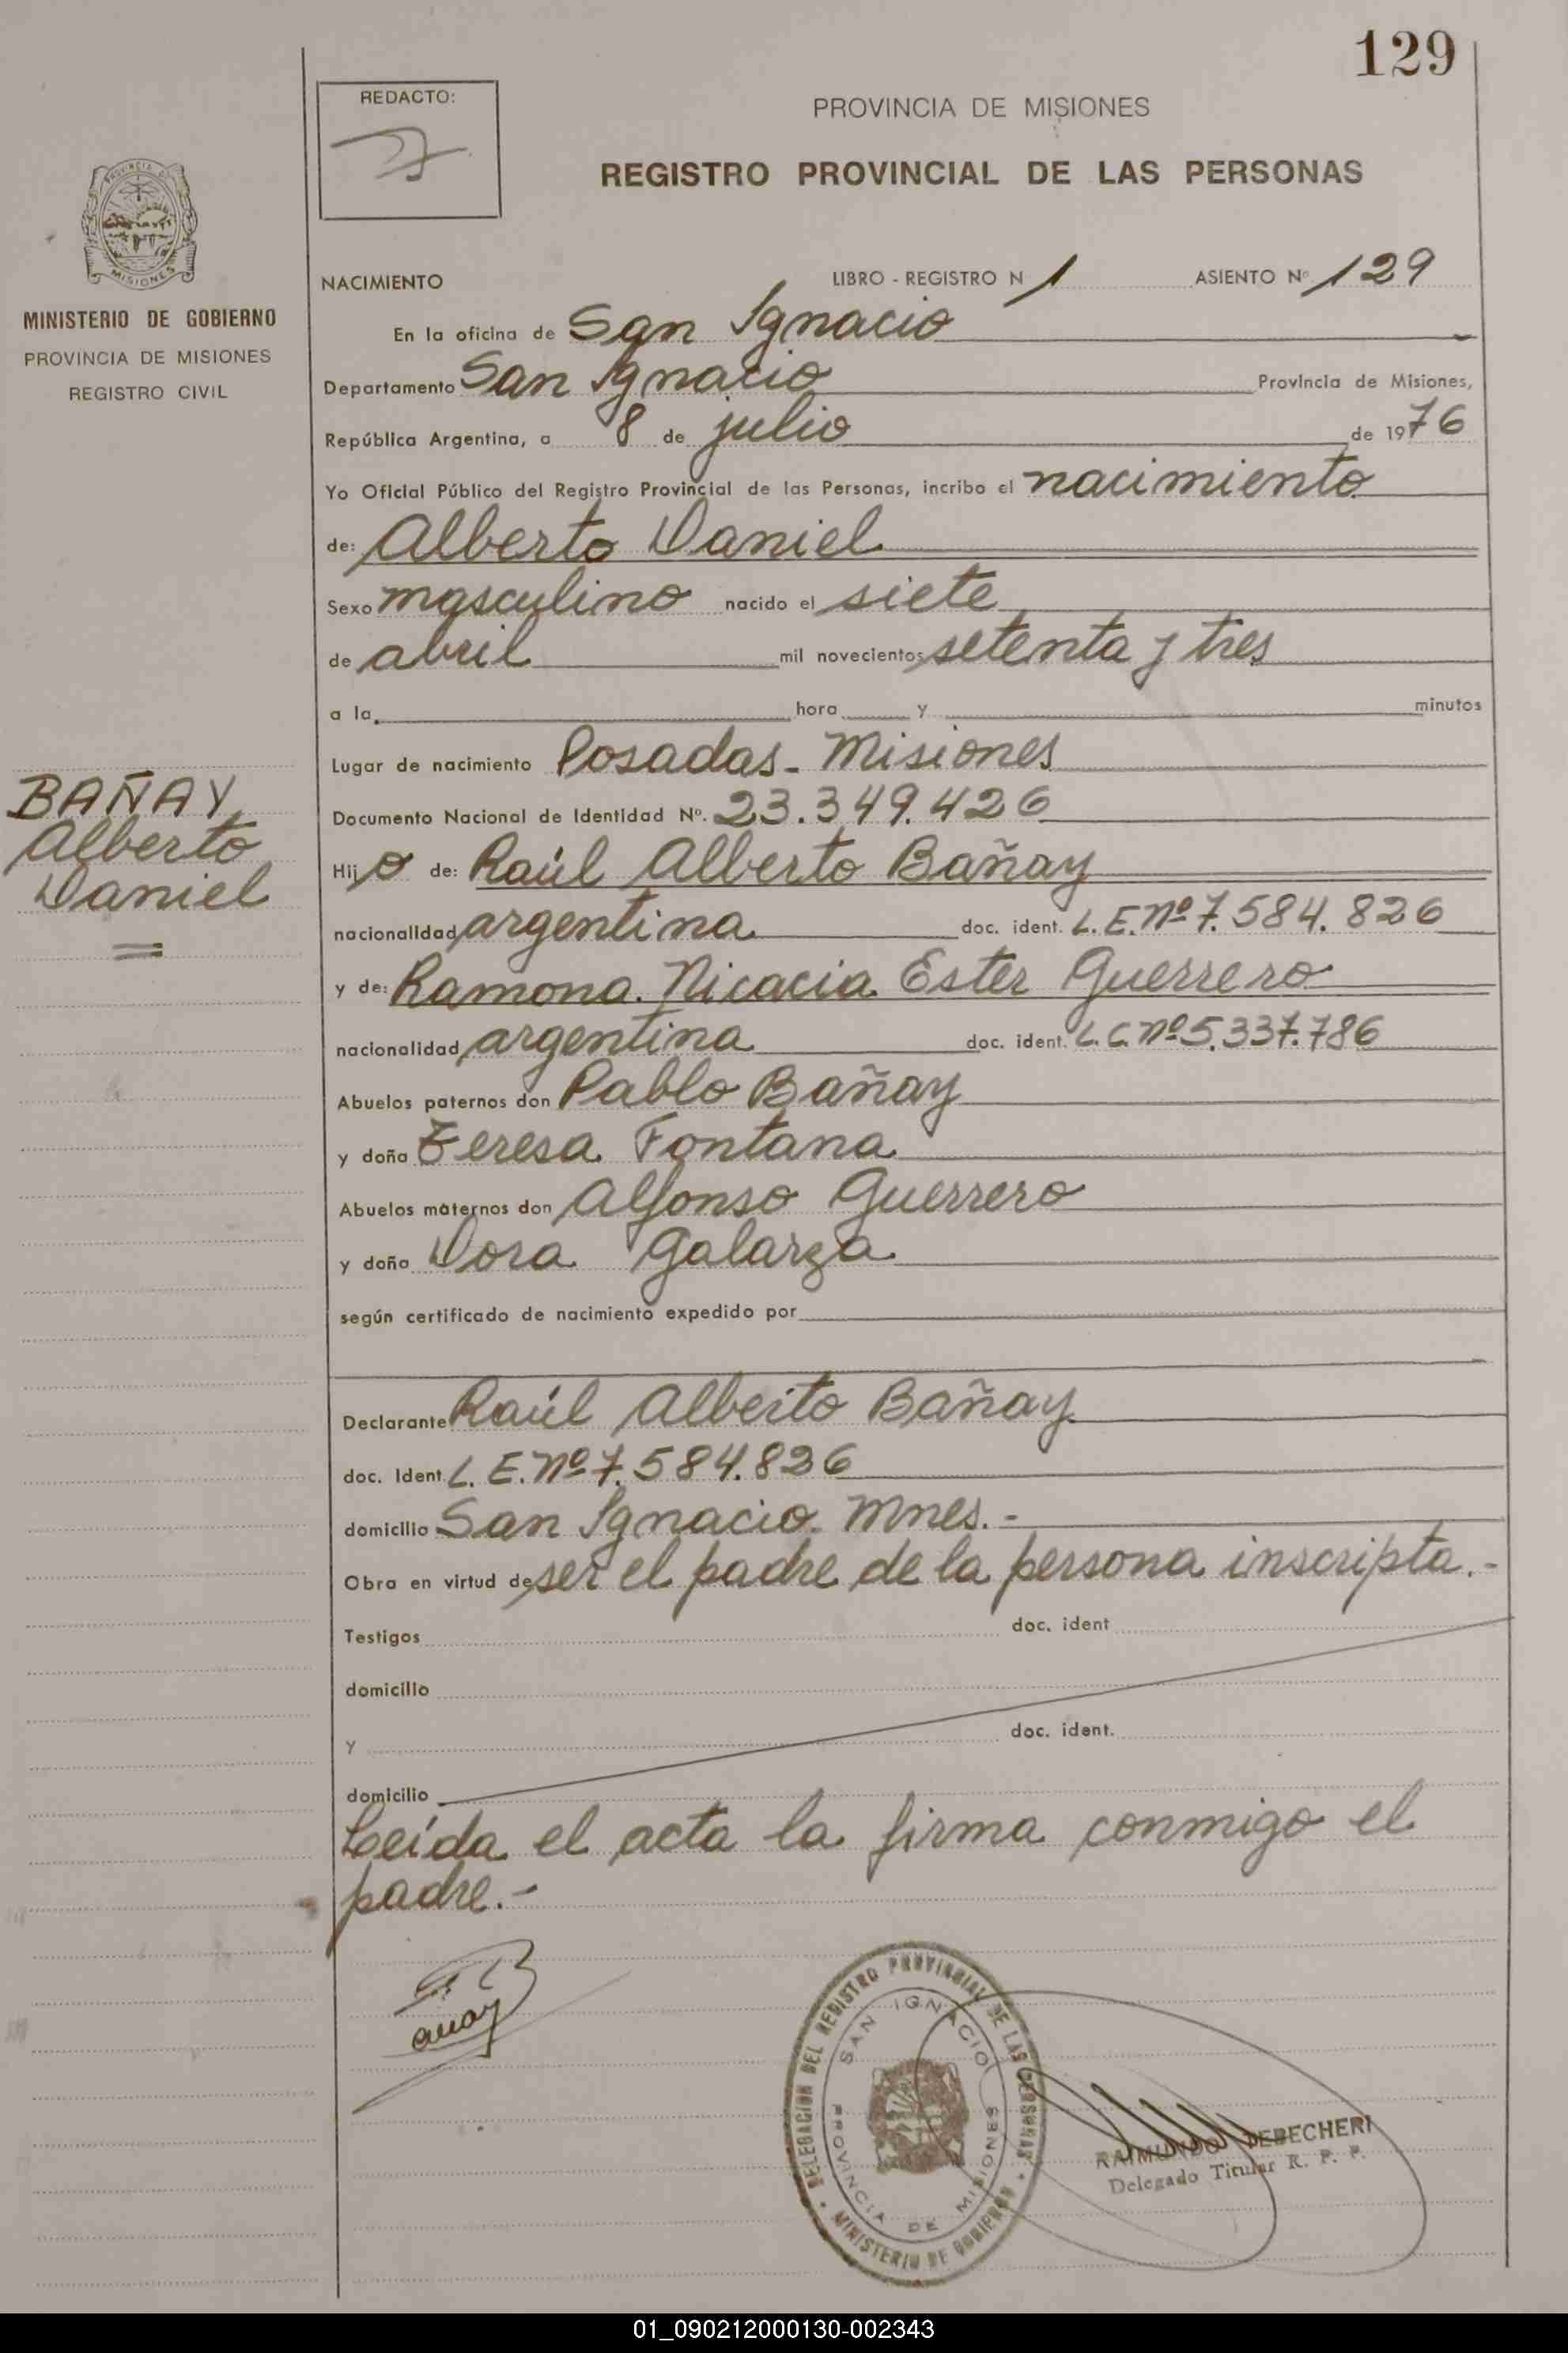 129
REDACTO:
PROVINCIA DE MISIONES
REGISTRO PROVINCIAL DE LAS PERSONAS
PROVINCIA DE
MISIONES
MINISTERIO DE GOBIERNO
PROVINCIA DE MISIONES
REGISTRO CIVIL
NACIMIENTO LIBRO - REGISTRO N 1 ASIENTO Nº 129
En la oficina de San Ignacio
Departamento San Ignacio Provincia de Misiones,
República Argentina, a 8 de julio de 1976
Yo Oficial Público del Registro Provincial de las Personas, incribo el nacimiento
de: Alberto Daniel
Sexo masculino nacido el siete
de abril mil novecientos setenta y tres
a la hora y minutos
Lugar de nacimiento Posadas - Misiones
BAÑAY
Alberto
Daniel
Documento Nacional de Identidad Nº. 23.349.426
Hijo de: Raúl Alberto Bañay
nacionalidad argentina doc. ident. L. E. Nº 7.584.826
y de: Ramona Nicacia Ester Guerrero
nacionalidad argentina doc. ident. L. C. Nº 5.337.786
Abuelos paternos don Pablo Bañay
y doña Teresa Fontana
Abuelos maternos don Alfonso Guerrero
y doña Dora Galarza
según certificado de nacimiento expedido por
Declarante Raúl Alberto Bañay
doc. Ident. L. E. Nº 7.584.826
domicilio San Ignacio. Mnes.-
Obra en virtud de ser el padre de la persona inscripta.-
Testigos doc. ident
domicilio
y doc. ident.
domicilio
Leída el acta la firma conmigo el
padre.-
DELEGACION DEL REGISTRO PROVINCIAL DE LAS PERSONAS
MINISTERIO DE GOBIERNO
SAN IGNACIO
PROVINCIA DE MISIONES
RAIMUNDO DEBECHERI
Delegado Titular R. P. P.
01_090212000130-002343